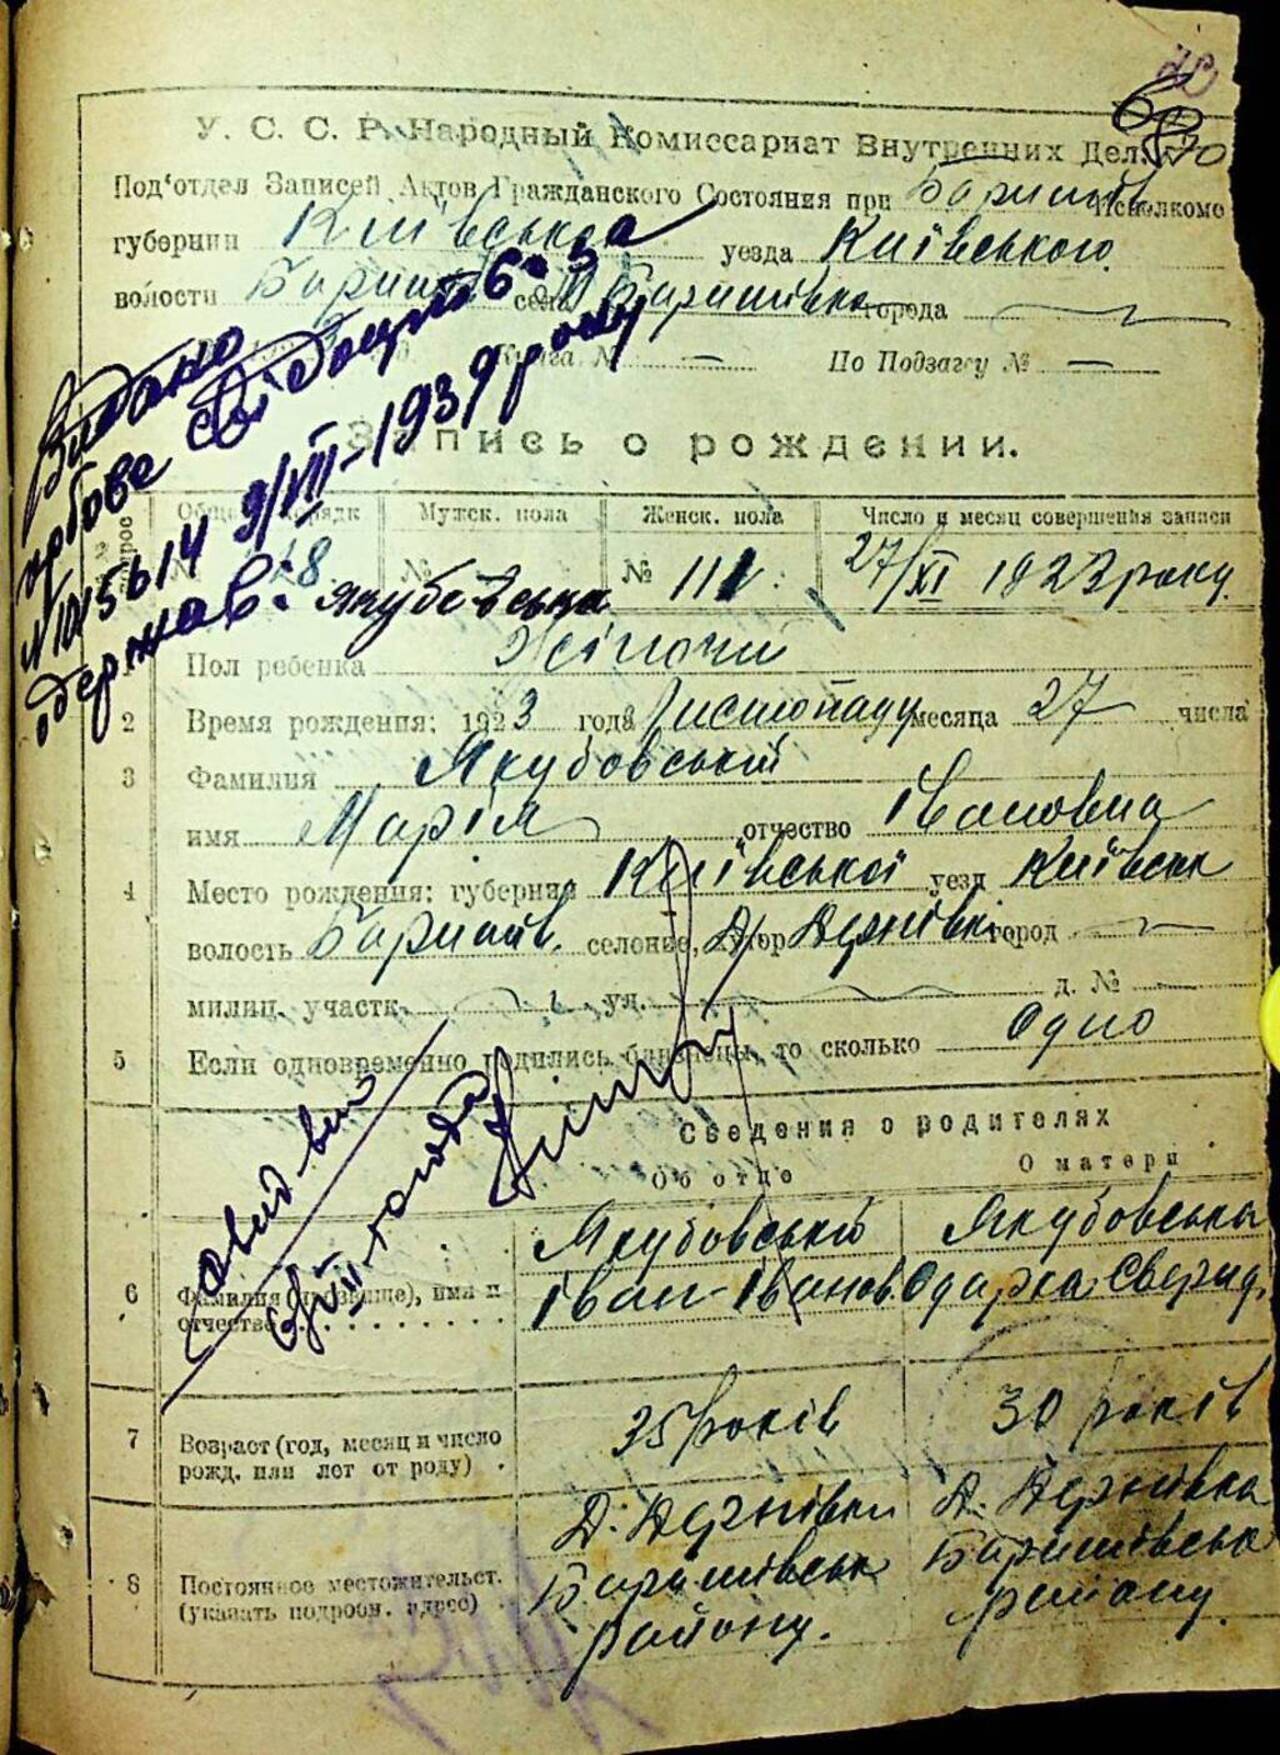 70
У. С. С. Р. Народный Комиссариат Внутренних Дел.
Под'отдел Записей Актов Гражданского Состояния при Баришів Исполкоме
губернии Київська уезда Київського
волости Бариш села М Баришівка города
Книга № — По Подзагсу № —
Видано
свідоцтво
N 105614 9/VII-1939 року
одержав: Якубовська
Запись о рождении.
Мужск. пола Женск. пола Число и месяц совершения записи
№ № 111 27/XI 1923 року
1 Пол ребенка Жіночий
2 Время рождения: 1923 года Листопаду месяца 27 числа
3 Фамилия Якубовський
имя Марія отчество Івановна
4 Место рождения: губерния Київської уезд Київськ
волость Баришів. селение, хутор Дернівкі город
милиц. участк. ул. д. № —
5 Если одновременно родились близнецы, то сколько Одно
Сведения о родителях
Об отце О матери
6 Фамилия (прозвище), имя и отчество Якубовський Якубовська
Іван Іванов. Одарка Сверид.
7 Возраст (год, месяц и число рожд. или лет от роду) 35 років 30 років
8 Постоянное местожительст. (указать подробн. адрес) Д. Дернівки Д. Дернівка
Баришівськ Баришівськ
району. району.